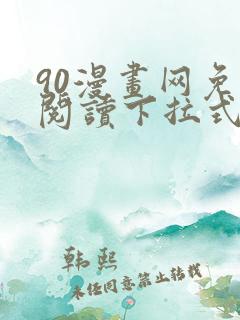 90漫畫网免
閱讀下拉式
韩熙
未经同意禁止转载